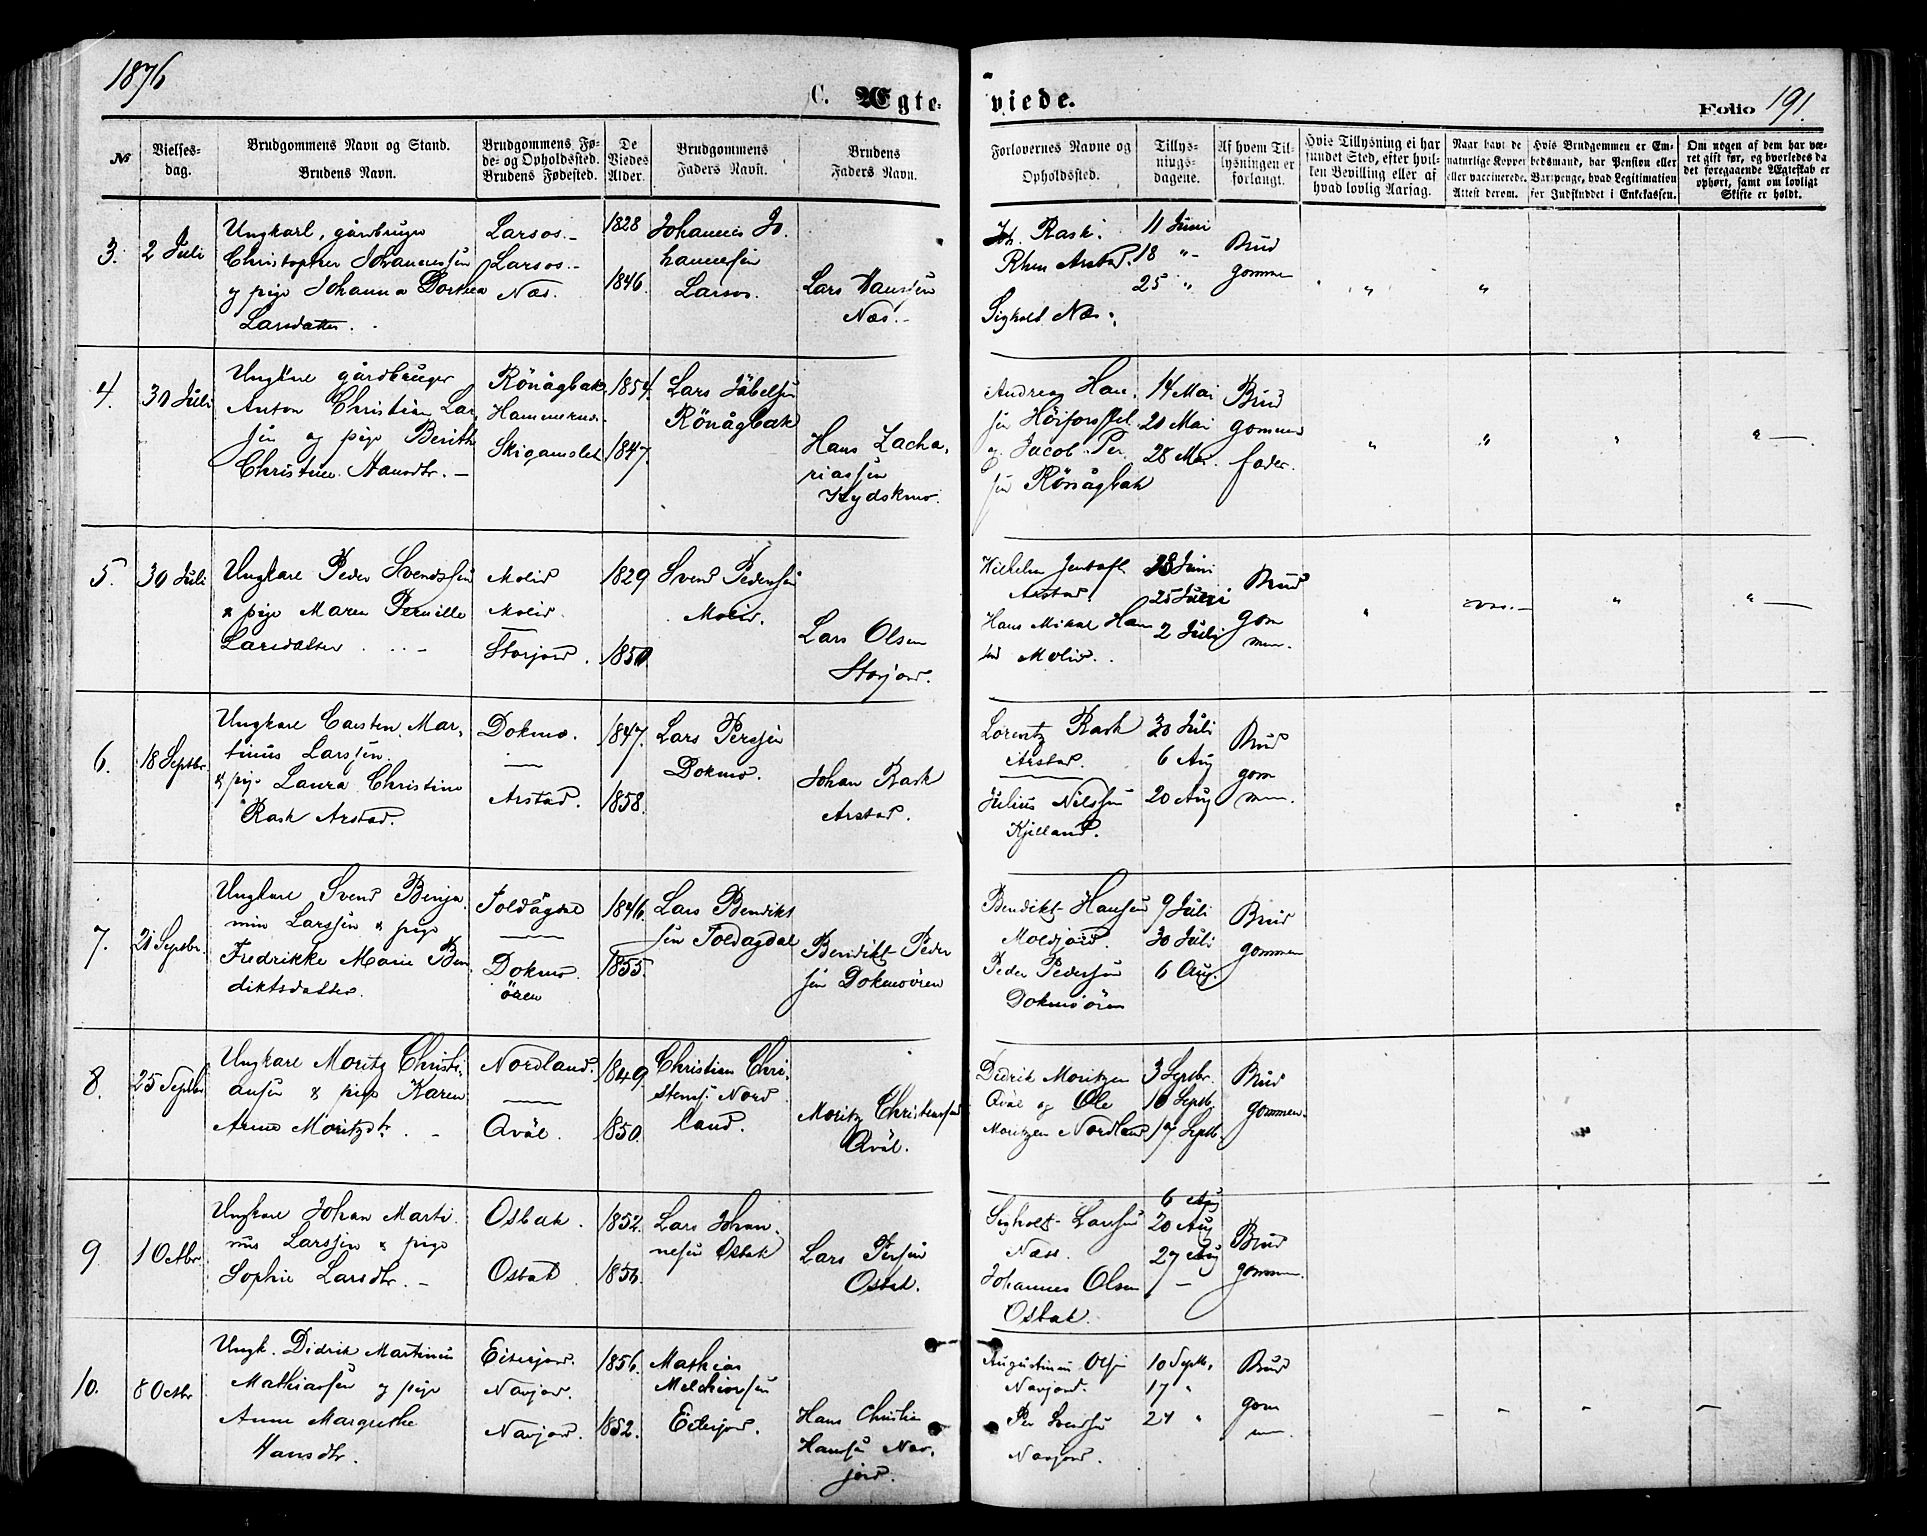 1876
C. Ægte-
viede.
Folio 191.
№
Vielses-
dag.
Brudgommens Navn og Stand.
Brudens Navn.
Brudgommens Fø-
de- og Opholdssted.
Brudens Fødested.
De
Viedes
Alder.
Brudgommens
Faders Navn.
Brudens
Faders Navn.
Forlovernes Navne og
Opholdssted.
Tillys-
nings-
dagene.
Af hvem Til-
lysningen er
forlangt.
Hvis Tillysning ei har
fundet Sted, efter hvil-
ken Bevilling eller af
hvad lovlig Aarsag.
Naar havt de
naturlige Kopper
eller vaccinerede.
Attest derom.
Hvis Brudgommen er Em-
bedsmand, har Pension eller
Vartpenge, hvad Legitimation
for Indskuddet i Enkekassen.
Om nogen af dem har væ-
ret gift før, og hvorledes da
det foregaaende Ægteskab er
ophørt, samt om lovligt
Skifte er holdt.
3. 2 Juli
Ungkarl, gårdbruger
Christopher Johannessen
og pige Johanna Dorthea
Larsdatter.
Larsos.
Larsos.
Næs.
1828
1846.
Johannes Jo-
hannesen
Larsos.
Lars Hanssen
Næs.
Joh. Rask.
Rhen Arstad.
Sigholt Næs.
11 Juni
18 "
25 "
Brud
gommen
" "
4. 30 Juli
Ungkarl gårdbruger
Anton Christian Lar
sen og pige Berith
Christine Hansdtr.
Rönågbak
Hammernes
Skigamslet
1854.
1847.
Lars Jäbelsen
Rönågbak
Hans Zacha-
riassen
Kydskmo.
Andreas Han
sen Höiforsfjel
og Jacob Per
sen Rönågbak
14 Mai
21 Mai
28 Mai.
Brud
gommens
fader.
" " " "
5. 30 Juli
Ungkarl Peder Svendssen
& pige Maren Pernille
Larsdatter
Molid
Molid.
Storjord.
1829
1850
Svend Pedersen
Molid.
Lars Olsen
Storjord.
Wilhelm Jentoft
Arstad.
Hans Mikal Han
sen Molid.
18 Juni
25 Juni
2 Juli
Brud
gom
men.
" " "
6. 18 Septbr.
Ungkarl Carsten Mar-
tinus Larssen.
& pige Laura Christine
Rask Arstad.
Dokmo.
Arstad.
1847.
1858.
Lars Persen
Dokmo.
Johan Rask
Arstad.
Lorentz Rask
Arstad.
Julius Nilssen
Kjelland.
30 Juli
6 Aug
20 Aug
Brud
gom
men.
7. 21 Septbr.
Ungkarl Svend Benja
min Larssen & pige
Fredrikke Marie Ben
diktsdatter.
Toldågdal
Dokmo
ören
1846.
1855.
Lars Bendikt
sen Toldagdal
Bendikt Peder
sen Dokmoören
Bendikt Hansen
Moldjord.
Peder Pedersen
Dokmoören
9 Juli
30 Juli
6 Aug.
Brud
gommen
8. 25 Septbr
Ungkarl Moritz Christi-
ansen & pige Karen
Anna Moritzdtr.
Nordland.
Qväl.
1849.
1850.
Christian Chri-
stens. Nord
land.
Moritz Christensen
Qväl.
Didrik Moritzen
Qväl og Ole
Moritzen Nordland
3 Septbr.
10 Septb.
17 Septb.
Brud
gommen.
9 1 Octbr.
Ungkarl Johan Marti-
nus Larssen & pige
Sophie Larsdtr.
Osbak.
Osbak
1852.
1856.
Lars Johan-
nesen Osbak
Lars Persen
Osbak.
Sigholt Larsen
Næss.
Johannes Olsen
Osbak.
6 Aug
20 Aug
27 Aug
Brud
gommen.
10. 8 Octbr
Ungk. Didrik Martinus
Mathiassen og pige
Anne Margrethe
Hansdtr.
Eiterjord.
Navjord.
Navjord.
1856.
1852.
Mathias
Melchiorsen
Eiterjord.
Hans Christian
Hansen Nav-
jord.
Augustinus Olsen
Navjord.
Per Svendsen
Navjord.
10 Septb.
17 "
24 "
Brud
gom
men